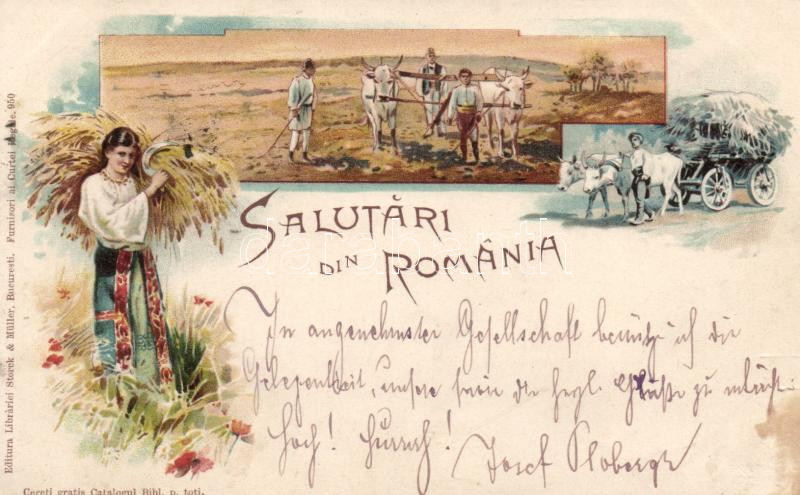 SALUTĂRI
DIN ROMÂNIA
In angenehmster Gesellschaft benütze ich die
Gelegenheit, unsere die herzl. Grüße zu
Hoch! Hurrah! Josef
Editura Librăriei Storck & Müller, Bucuresti. Furnisori ai Curtei 950
Cereti gratis Catalogul Bibl. p. toti.
darabanth